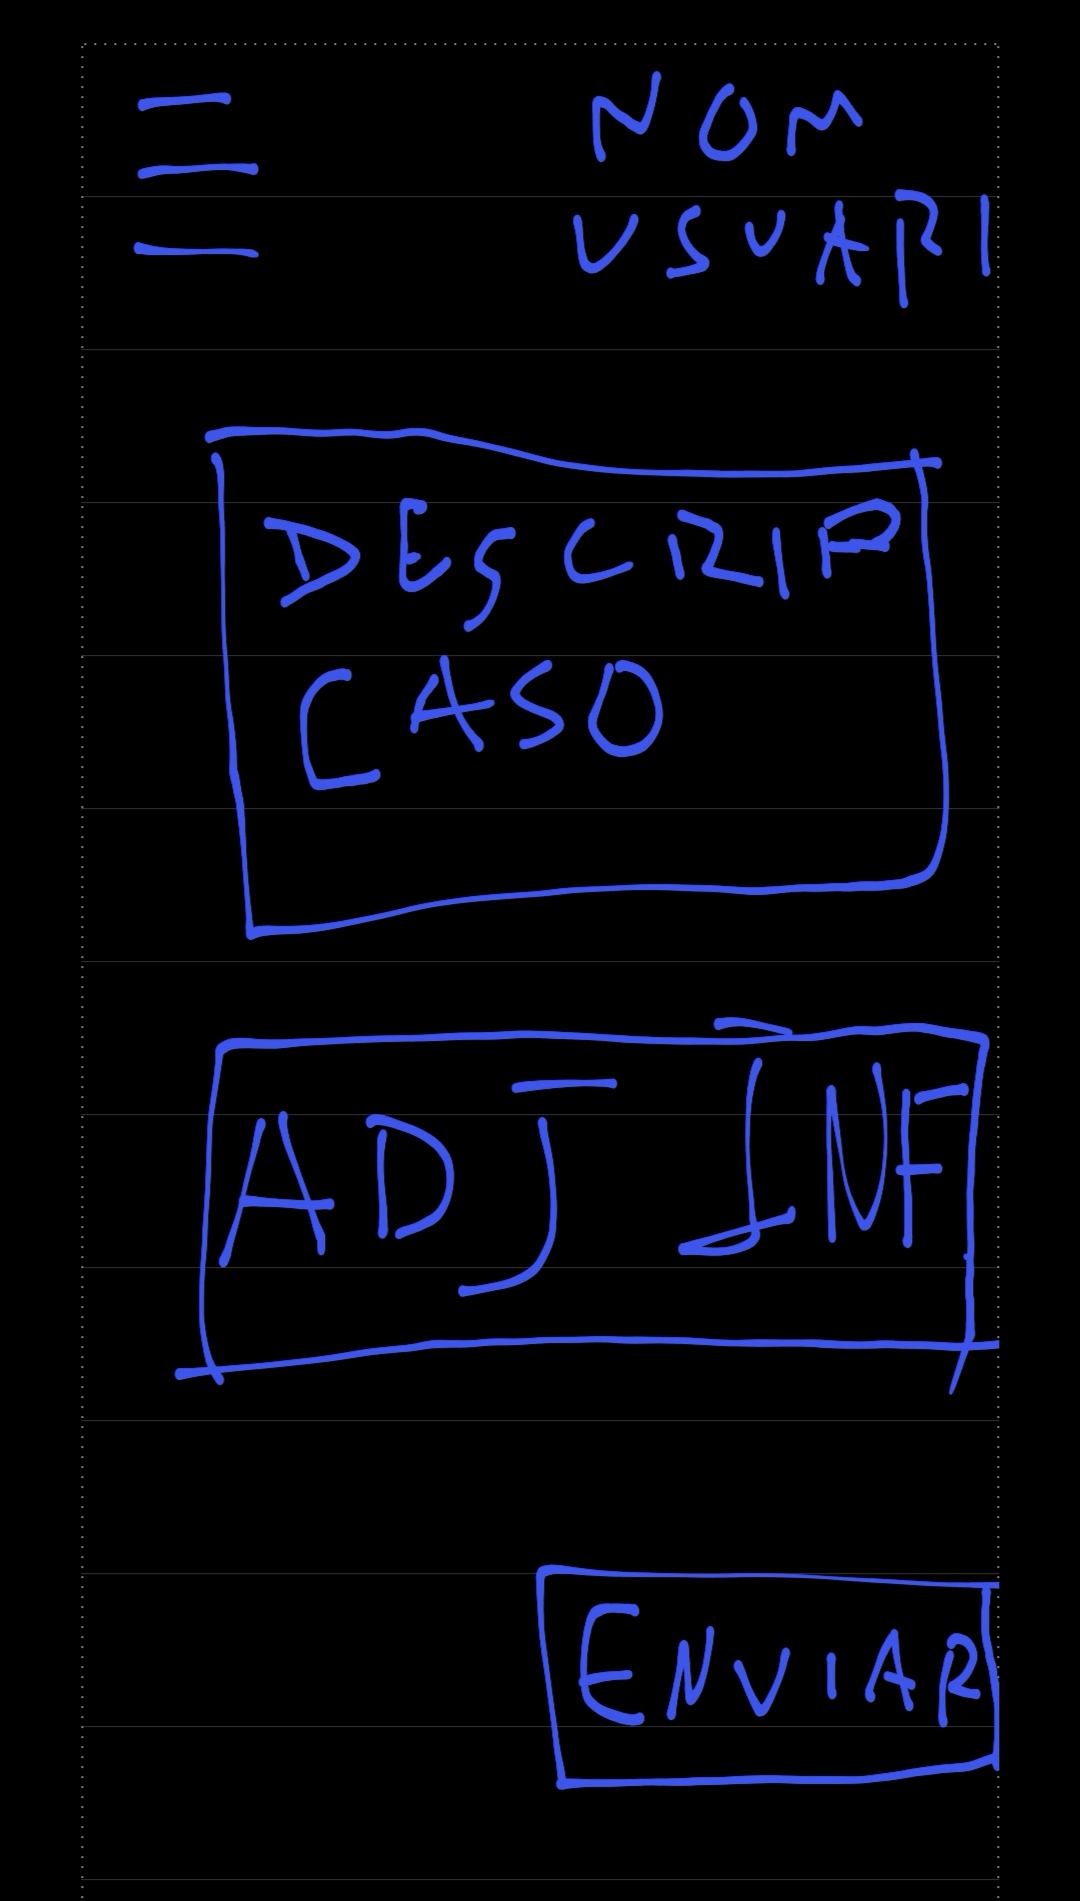 NOM
USUARI
DESCRIP
CASO
ADJ INF
ENVIAR